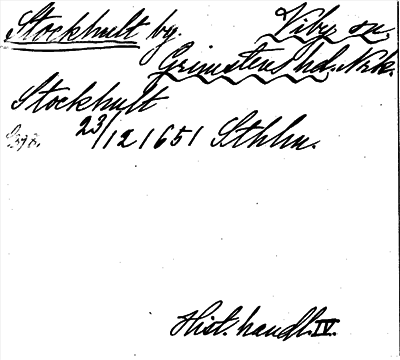 Stockhult by. Viby sn.
Grimstens hd. Nrk.
Stockhult
23/12 1651 Sthlm.
Hist. handl. IV.